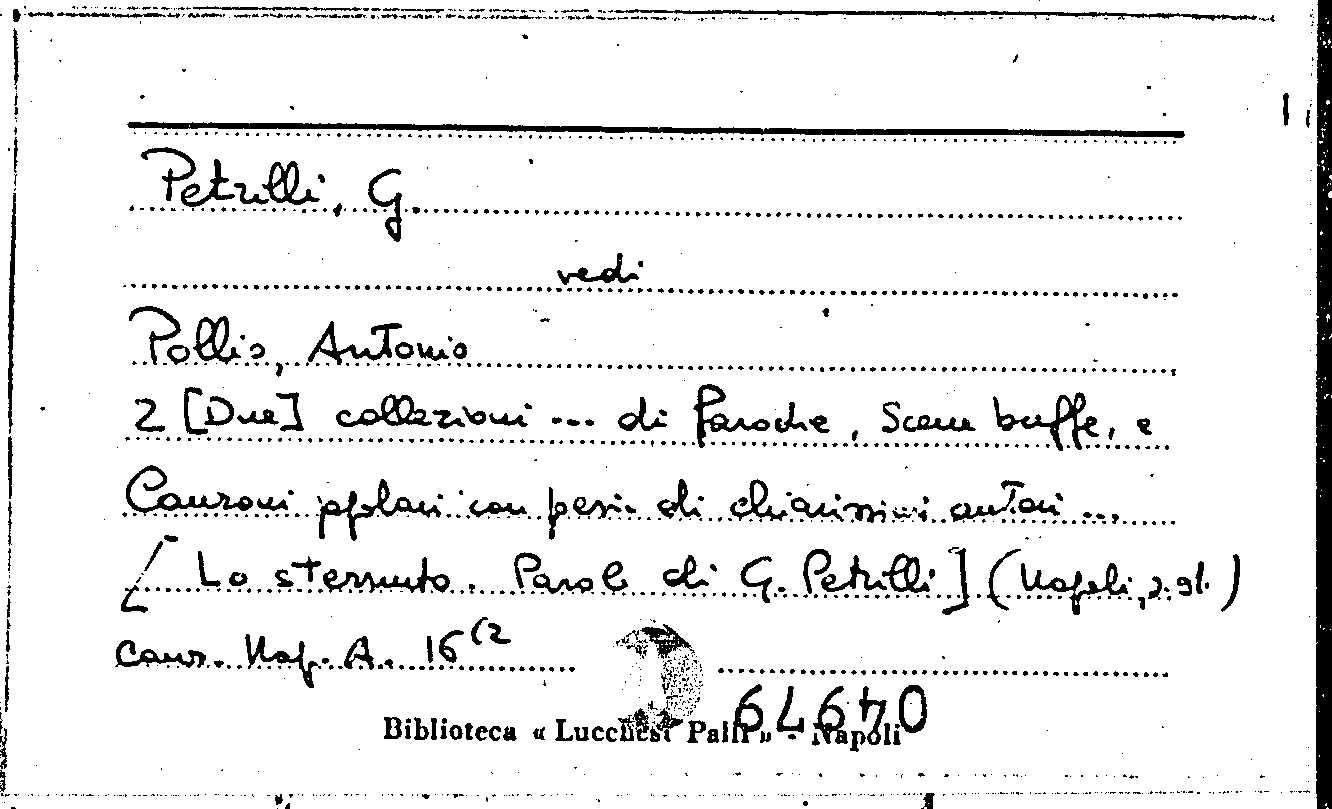 Petrilli, G.
vedi
Pollio, Antonio
2 [Due] collezioni ... di Parodie, Scene buffe, e
Canzoni popolari con poesie di chiarissimi autori ...
[Lo sternuto. Parole di G. Petrilli] (Napoli, s. d.)
Canz. Nap. A. 16(2
Biblioteca « Lucchesi Palli » - Napoli